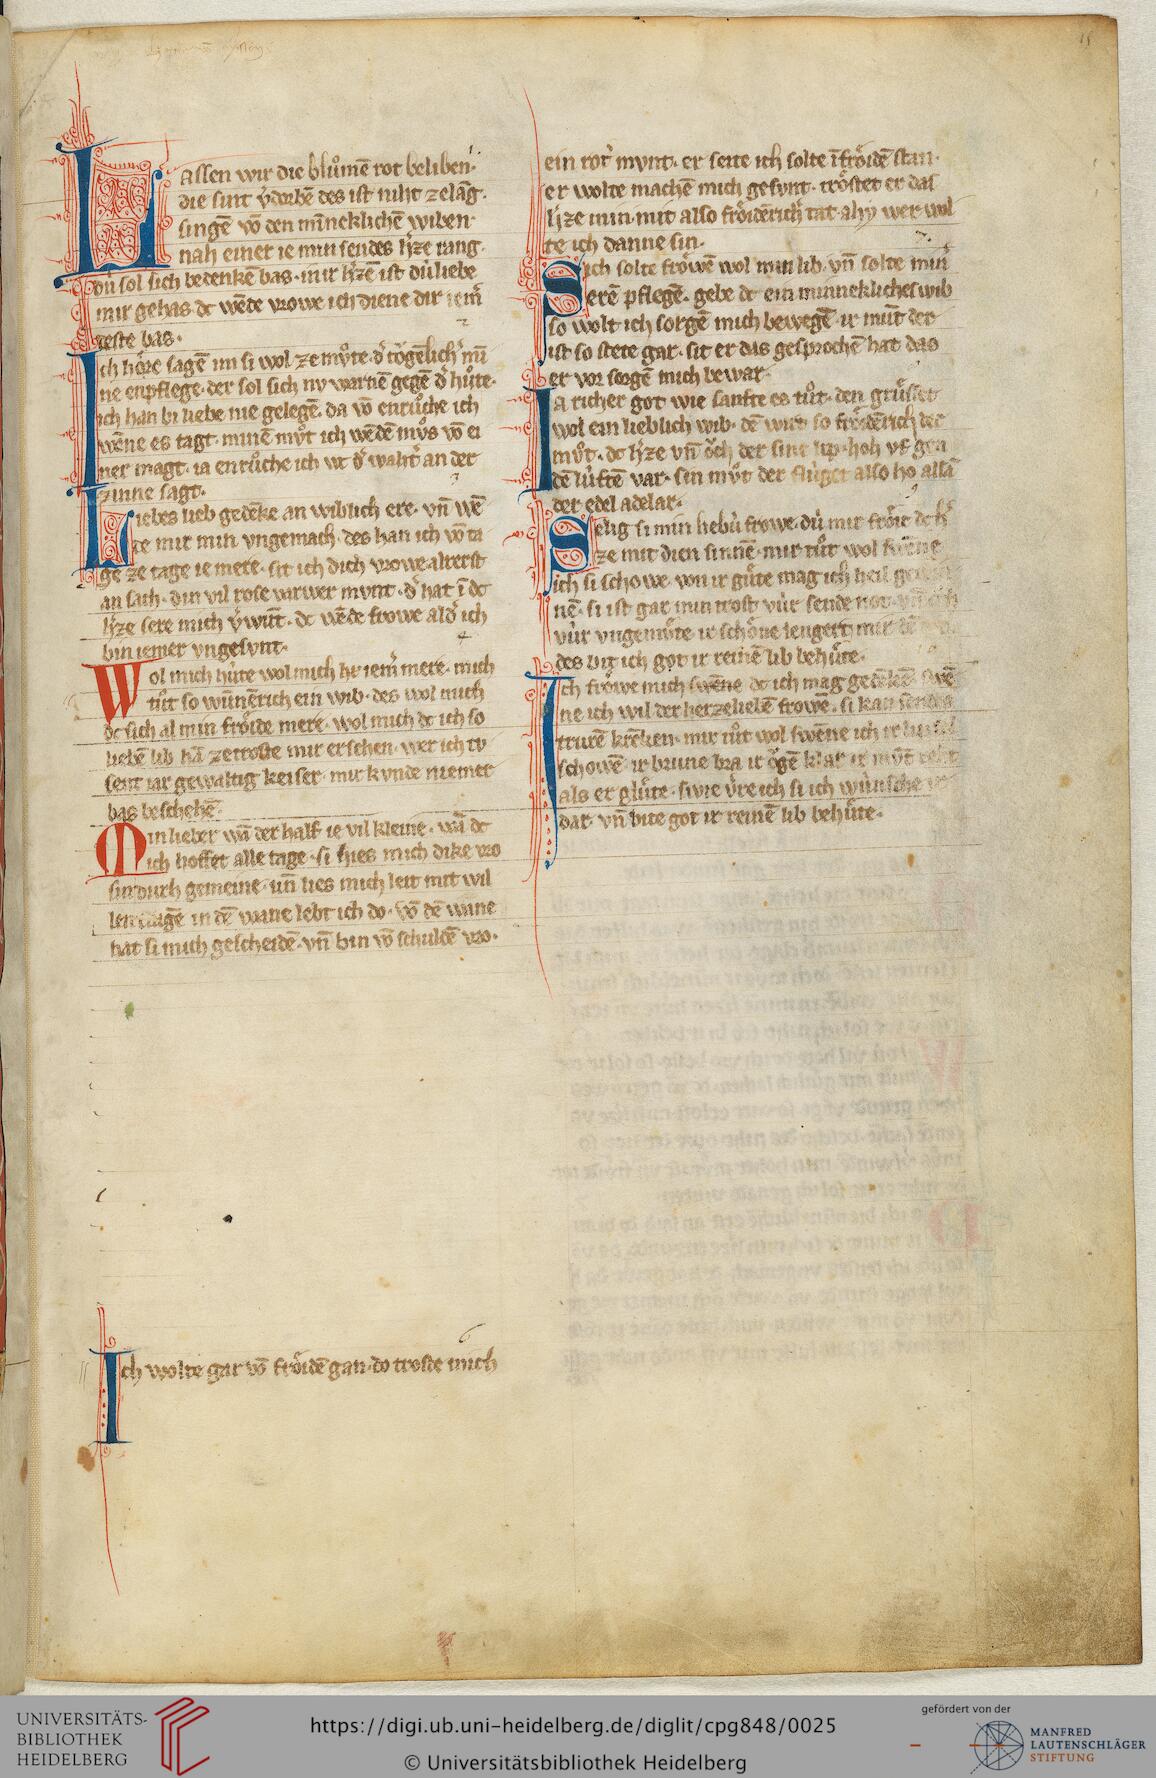 15
Lassen wir die blůmē rot beliben·
die sint v̾dorbē des ist niht ze lāg·
singē vō den mīneklichē wiben·
nah einer ie min sendes h̾ze rang·
dú sol sich bedenkē bas· mir h̾zē ist dú liebe
mir gehas· dc wēde vrowe ich diene dir iem̄
teste bas·
Ich hore sagē im si wol ze mv̊te· d̾ tōgēlich̾ mī
ne enpflege· der sol sich nv warnē gegē d̾ hůte·
ich han bi liebe nie gelegē· da vō enrůche ich
wēne es tagt· minē mv̊t ich wēdē mv̊s vō ei
ner magt· ia enrůche ich wc d̾ waht̾ an der
zinne sagt·
Liebes lieb gedēke an wiblich ere· vn̄ wē
te mir min vngemach· des han ich vō ta
ge ze tage ie mere· sit ich dich vrowe alrerst
an sach· din vil rose varwer mvnt· d̾ hat ī dc
h̾ze sere mich v̾wūt· dc wēde frowe ald̾ ich
bin iemer vngesvnt·
Wol mich húte wol mich hv́ iem̄ mere· mich
tůt so wūnērich ein wib· des wol mich
dc sich al min frŏide mere· wol mich dc ich so
liebē lib hā ze troste mir ersehen· wer ich tv
sent iar gewaltig keiser· mir kvnde niemer
bas beschehē·
Min lieber wā der half ie vil kleine· wā dc
ich hoffet alle tage· si hies mich dike vro
sin durh gemeine· vn̄ lies mich leit mit wil
len tragē in dē wane lebt ich do· vō dē wane
hat si mich gescheidē· vn̄ bin vō schuldē vro·
Ich wolte gar vō frŏidē gan· do troste mich
ein rot̾ mvnt· er seite ich solte ī frŏidē stan·
er wolte machē mich gesvnt· trŏstet er das
h̾ze min mit also frŏiderich̾ tat· ahy wer wol
te ich danne sin·
Sich solte frŏwē wol min lib· vn̄ solte min
serē pflegē· gebe dc ein minnekliches wib
so wolt ich sorgē mich bewegē· ir mūt der
ist so stete gar· sit er das gesprochē hat das
er vor sorgē mich bewar·
Ia richer got wie sanfte es tůt· den grůsset
wol ein lieblich wib· dē wirt so frŏidērich der
mv̊t· dc h̾ze vn̄ ŏch der sint lip· hoh vf gen
dē lúftē var· sin mv̊t der flúget also ho alsā
der edel adelar·
Selig si min liebú frowe· dú mir frŏit dc h̾
ze mit dien sinnē· mir tůt wol swēne
ich si schowe· von ir gůte mag ich heil gewin
nē· si ist gar min trost vúr sende not· vn̄ ŏch
vúr vngemv̊te· ir schŏne lengert mir
des bit ich got ir reinē lib behůte·
Ich frŏwe mich swēne dc ich mag gedēkē· swē
ne ich wil der herzeliebē frowē· si kan sendes
trurē krēken· mir tůt wol swēne ich ir
schowē· ir brune bra ir ŏgē klar ir mūt reht
als er glůte· swie v̾re ich si ich wúnsche ie
dar· vn̄ bite got ir reinē lib behůte·
UNIVERSITÄTS-
BIBLIOTHEK
HEIDELBERG
https://digi.ub.uni-heidelberg.de/diglit/cpg848/0025
© Universitätsbibliothek Heidelberg
gefördert von der
MANFRED
LAUTENSCHLÄGER
STIFTUNG